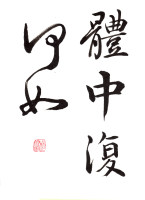 體中復
何如